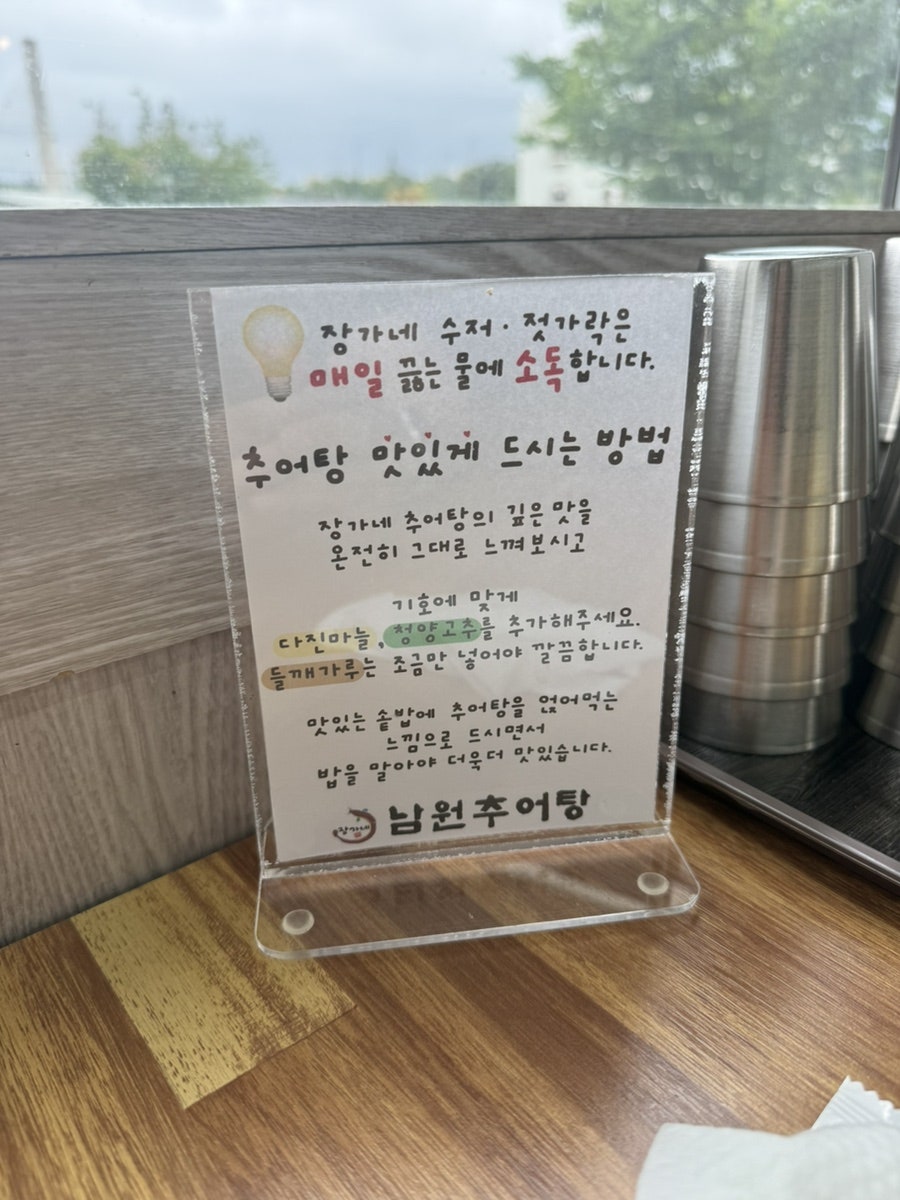 장가네 수저·젓가락은
매일 끓는 물에 소독합니다.
추어탕 맛있게 드시는 방법
장가네 추어탕의 깊은 맛을
온전히 그대로 느껴보시고
기호에 맞게
다진마늘, 청양고추를 추가해주세요.
들깨가루는 조금만 넣어야 깔끔합니다.
맛있는 솥밥에 추어탕을 얹어먹는
느낌으로 드시면서
밥을 말아야 더욱더 맛있습니다.
장가네 남원추어탕